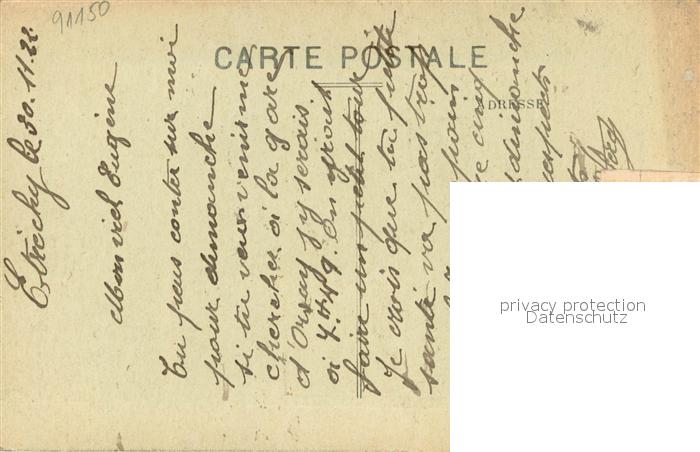 91150
CARTE POSTALE
ADRESSE
Etrechy le 30.11.22
Mon vieil Eugène
Tu peus conter sur moi
pour dimanche
si tu veux venir me
chercher à la gare
d'Orsay j'y serais
à 7 H 49. On iront
faire un petit tour
Je crois que ta petite
santé va pas trop
dimanche
privacy protection
Datenschutz